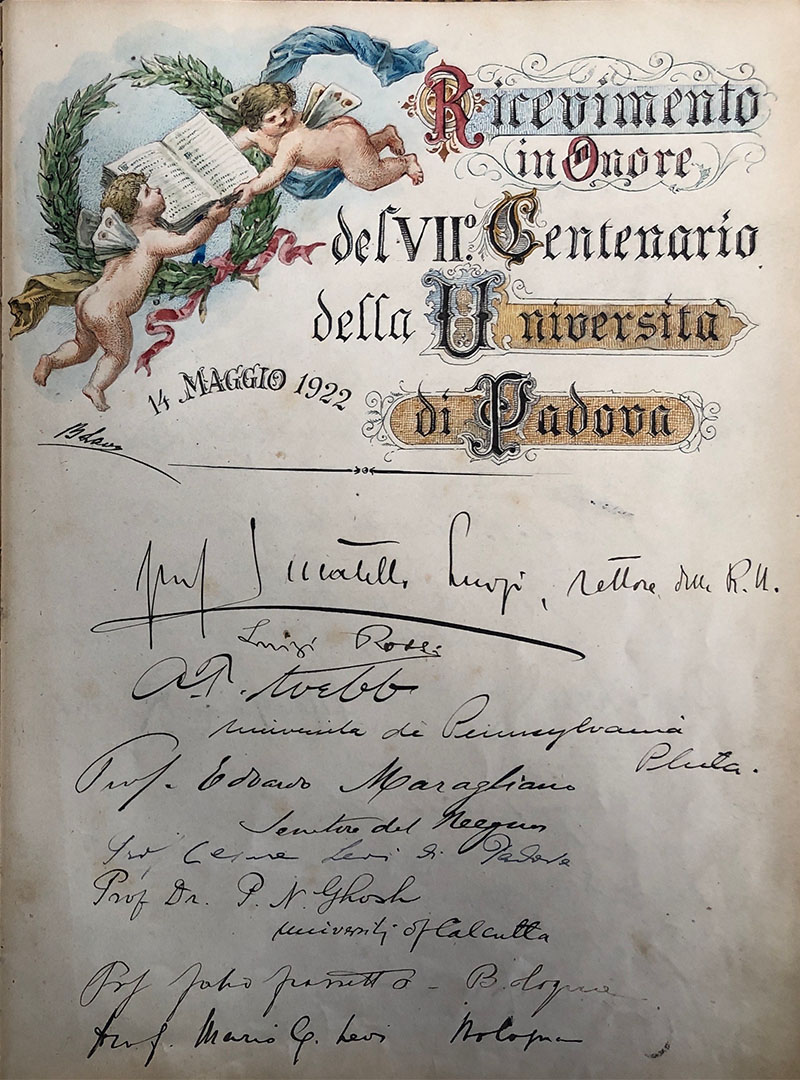 Ricevimento
in Onore
del VIIº. Centenario
della Università
di Padova
14 MAGGIO 1922
prof Lucatello Luigi, rettore della R. U.
Luigi Rossi
università di Pennsylvania
Phila.
Prof. Edoardo Maragliano
Senatore del Regno
Prof Cesare Levi di Padova
Prof Dr. P. N. Ghosh
University of Calcutta
Prof Fabio Frassetto - Bologna
Prof. Mario G. Levi Bologna